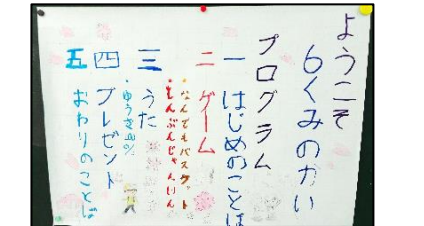 ようこそ
6くみのかい
プログラム
一 はじめのことば
二 ゲーム
・なんでもバスケット
・しんぶんじゃんけん
三 うた
四 プレゼント
五 おわりのことば